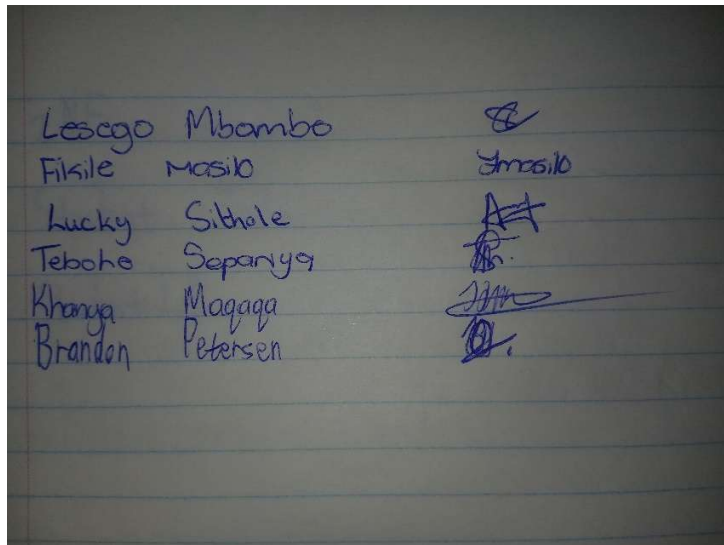 Lesego Mbambo
Fikile Masilo Fmasilo
Lucky Sithole
Teboho Sepanya
Khanya Maqaqa
Brandon Petersen